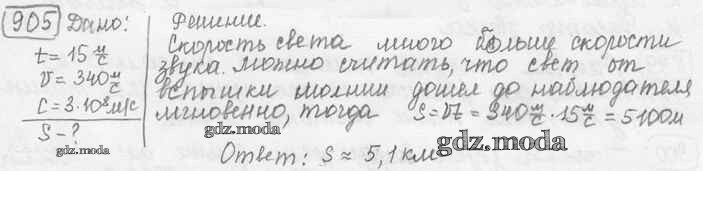 905 Дано: Решение.
t = 15 м/с Скорость света много больше скорости
v = 340 м/с звука. Можно считать, что свет от
c = 3·10⁸ м/с вспышки молнии дошел до наблюдателя
S - ? мгновенно, тогда S = vt = 340 м/с · 15 м/с = 5100м
gdz.moda
gdz.moda
gdz.moda
Ответ: S ≈ 5,1 км
gdz.moda